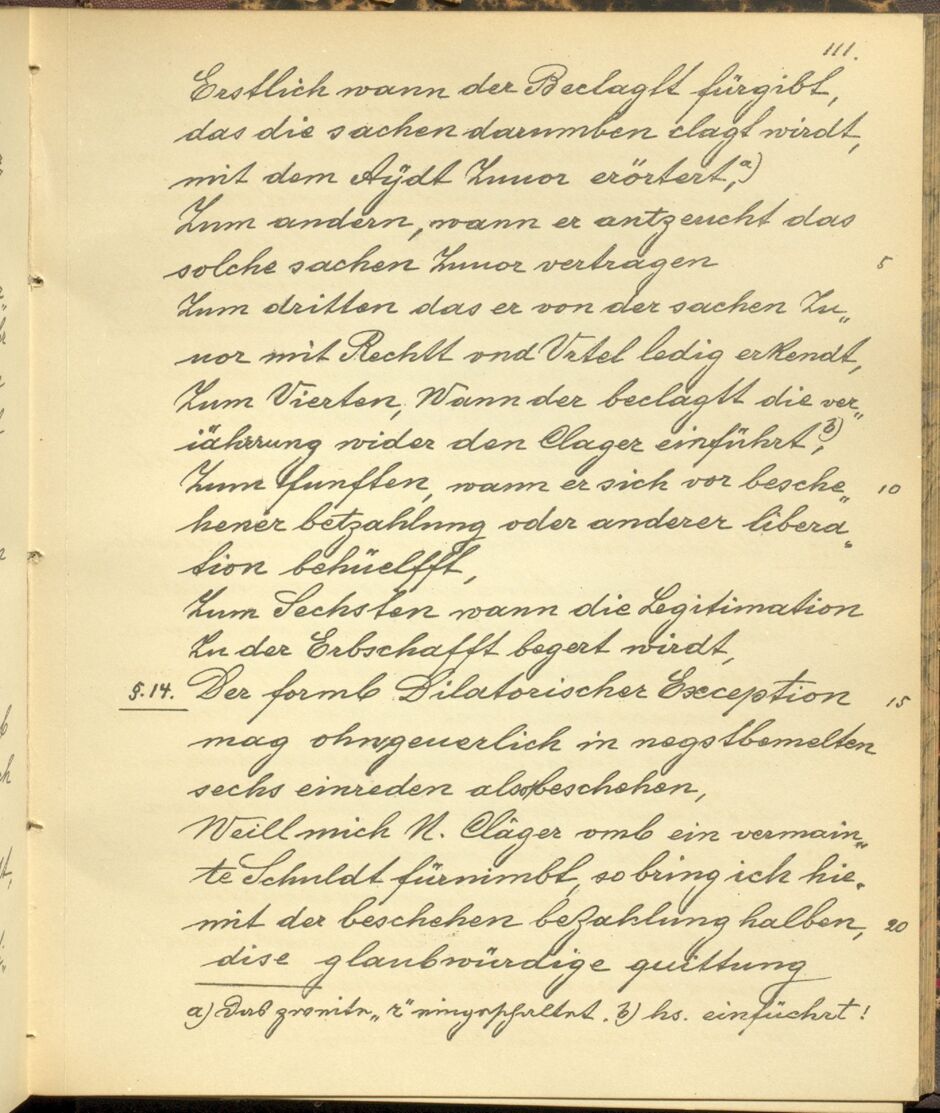 111.
Erstlich wann der Beclagtt fürgibt,
das die sachen darumben clagt wirdt,
mit dem Aÿdt Zuuor erörtert, a)
Zum andern, wann er antzeucht das
solche sachen Zuuor vertragen 5
Zum dritten das er von der sachen Zu„
uor mit Rechtt vnd Vrtel ledig erkendt,
Zum Vierten, Wann der beclagtt die ver„
iährung wider den Clager einführt, b)
Zum funften, wann er sich vor besche„ 10
hener betzahlung oder anderer libera„
tion behüelfft,
Zum Sechsten wann die Legitimation
Zu der Erbschafft begert wirdt,
§.14. Der formb Dilatorischer Exception 15
mag ohngeuerlich in negstbemelten
sechs einreden also beschehen,
Weill mich N. Cläger vmb ein vermain„
te Schuldt fürnimbt, so bring ich hie„
mit der beschehen beZahlung halben, 20
dise glaubwürdige quittung
a) Das zweite „r“ eingeschaltet. b) hs. einfüchrt!